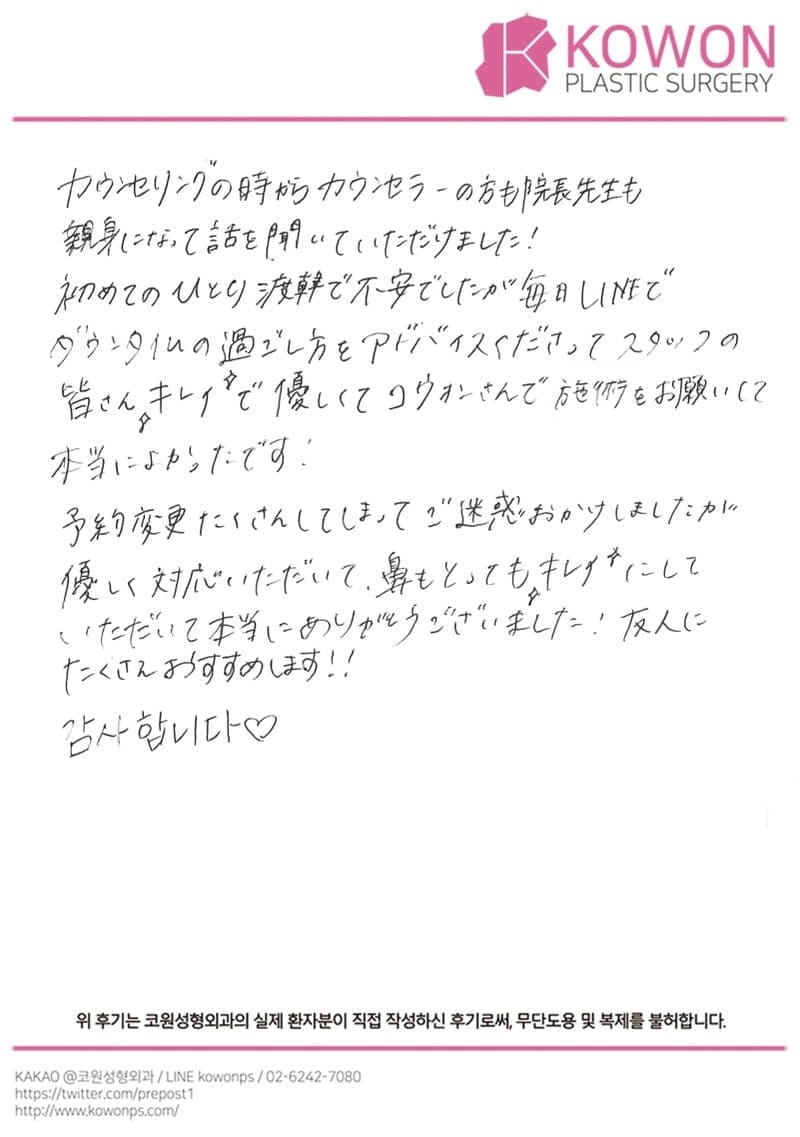 KOWON
PLASTIC SURGERY
カウンセリングの時からカウンセラーの方も院長先生も
親身になって話を聞いていただけました!
初めてのひとり渡韓で不安でしたが毎日LINEで
ダウンタイムの過ごし方をアドバイスくださってスタッフの
皆さんキレイで優しくてコウォンさんで施術をお願いして
本当によかったです!
予約変更たくさんしてしまってご迷惑おかけしましたが
優しく対応いただいて、鼻もとってもキレイにして
いただいて本当にありがとうございました! 友人に
たくさんおすすめします!!
감사합니다♡
위 후기는 코원성형외과의 실제 환자분이 직접 작성하신 후기로써, 무단도용 및 복제를 불허합니다.
KAKAO @코원성형외과 / LINE kowonps / 02-6242-7080
https://twitter.com/prepost1
http://www.kowonps.com/